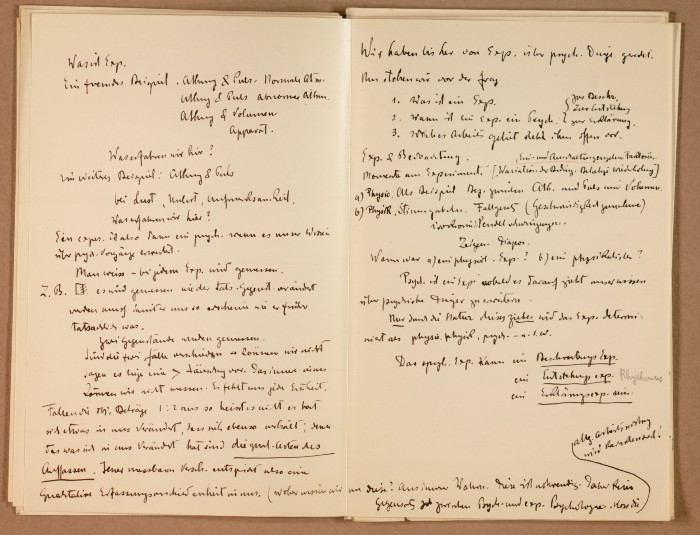 Was ist Exp.
Ein fremdes Beispiel. Atmung & Puls. Normale Atm.
Atmung & Puls abnorme Atm.
Atmung & Volumen
Apparat.
Was erfahren wir hier?
Ein weiteres Beispiel: Atmung & Puls
bei Lust, Unlust, Aufmerksamkeit.
Was erfahren wir hier?
Ein exper. ist also dann ein psych. wenn es unser Wissen
über psych. Vorgänge erweitert.
Man weiss – bei jedem Exp. wird gemessen.
Z.B. es wird gemessen wie der Gegenst. verändert
werden muss damit er uns so erscheine wie er früher
tatsächlich war.
Zwei Gegenstände werden gemessen.
Sind die zwei Fälle verschieden so können wir nicht
sagen es liege eine > Täuschung vor. Das innere eines
können wir nicht messen. Es fehlt uns jede Einheit.
Fallen die obj. Beträge 1:2 aus so heisst es nicht es hat
sich etwas in uns verändert, dass sich ebenso verhält; denn
das was sich in uns verändert hat sind die Arten des
Auffassens. Jener messbaren Versch. entspricht also eine
qualitative Erfassungsverschiedenheit in uns. (Woher wissen wir um diese? Aus innerer Wahrn. Diese ist notwendig. Daher kein
Gegensatz zwischen Psych. und exp. Psychologie.
Wir haben bisher von Exp. über psych. Dinge geredet.
Nun stehen wir vor der Frage
1. Was ist ein Exp.
2. Wann ist ein Exp. ein Psych. { zur Beschr. zur Entstehung zur Erklärung.
3. Welches Arbeitsgebiet steht ihm offen vor.
Exp. & Beobachtung.
Momente am Experiment [Variation der Beding. Beliebige Wiederholung]
a) Physio. Als Beispiel Bez. zwischen Atm. und Puls und Volumen.
b) Physik. Stimmgabeln. Fallgesetz (Geschwindigkeitszunahme)
Pendelschwingungen.
Zeigen. Diapos.
Wann war a) ein physiol. Exp.? b) ein physikalische?
Psych. ist ein Exp. sobald es darauf zielt unser wissen
über psychische Dinge zu erweitern.
Nur durch die Natur dieses Zieles wird das Exp. determi-
niert als physio. physik., psych. – u.s.w.
Das psych. Exp. kann ein Beschreibungsexp.
ein Entstehungsexp. Rhythmus
ein Erklärungsexp. sein.